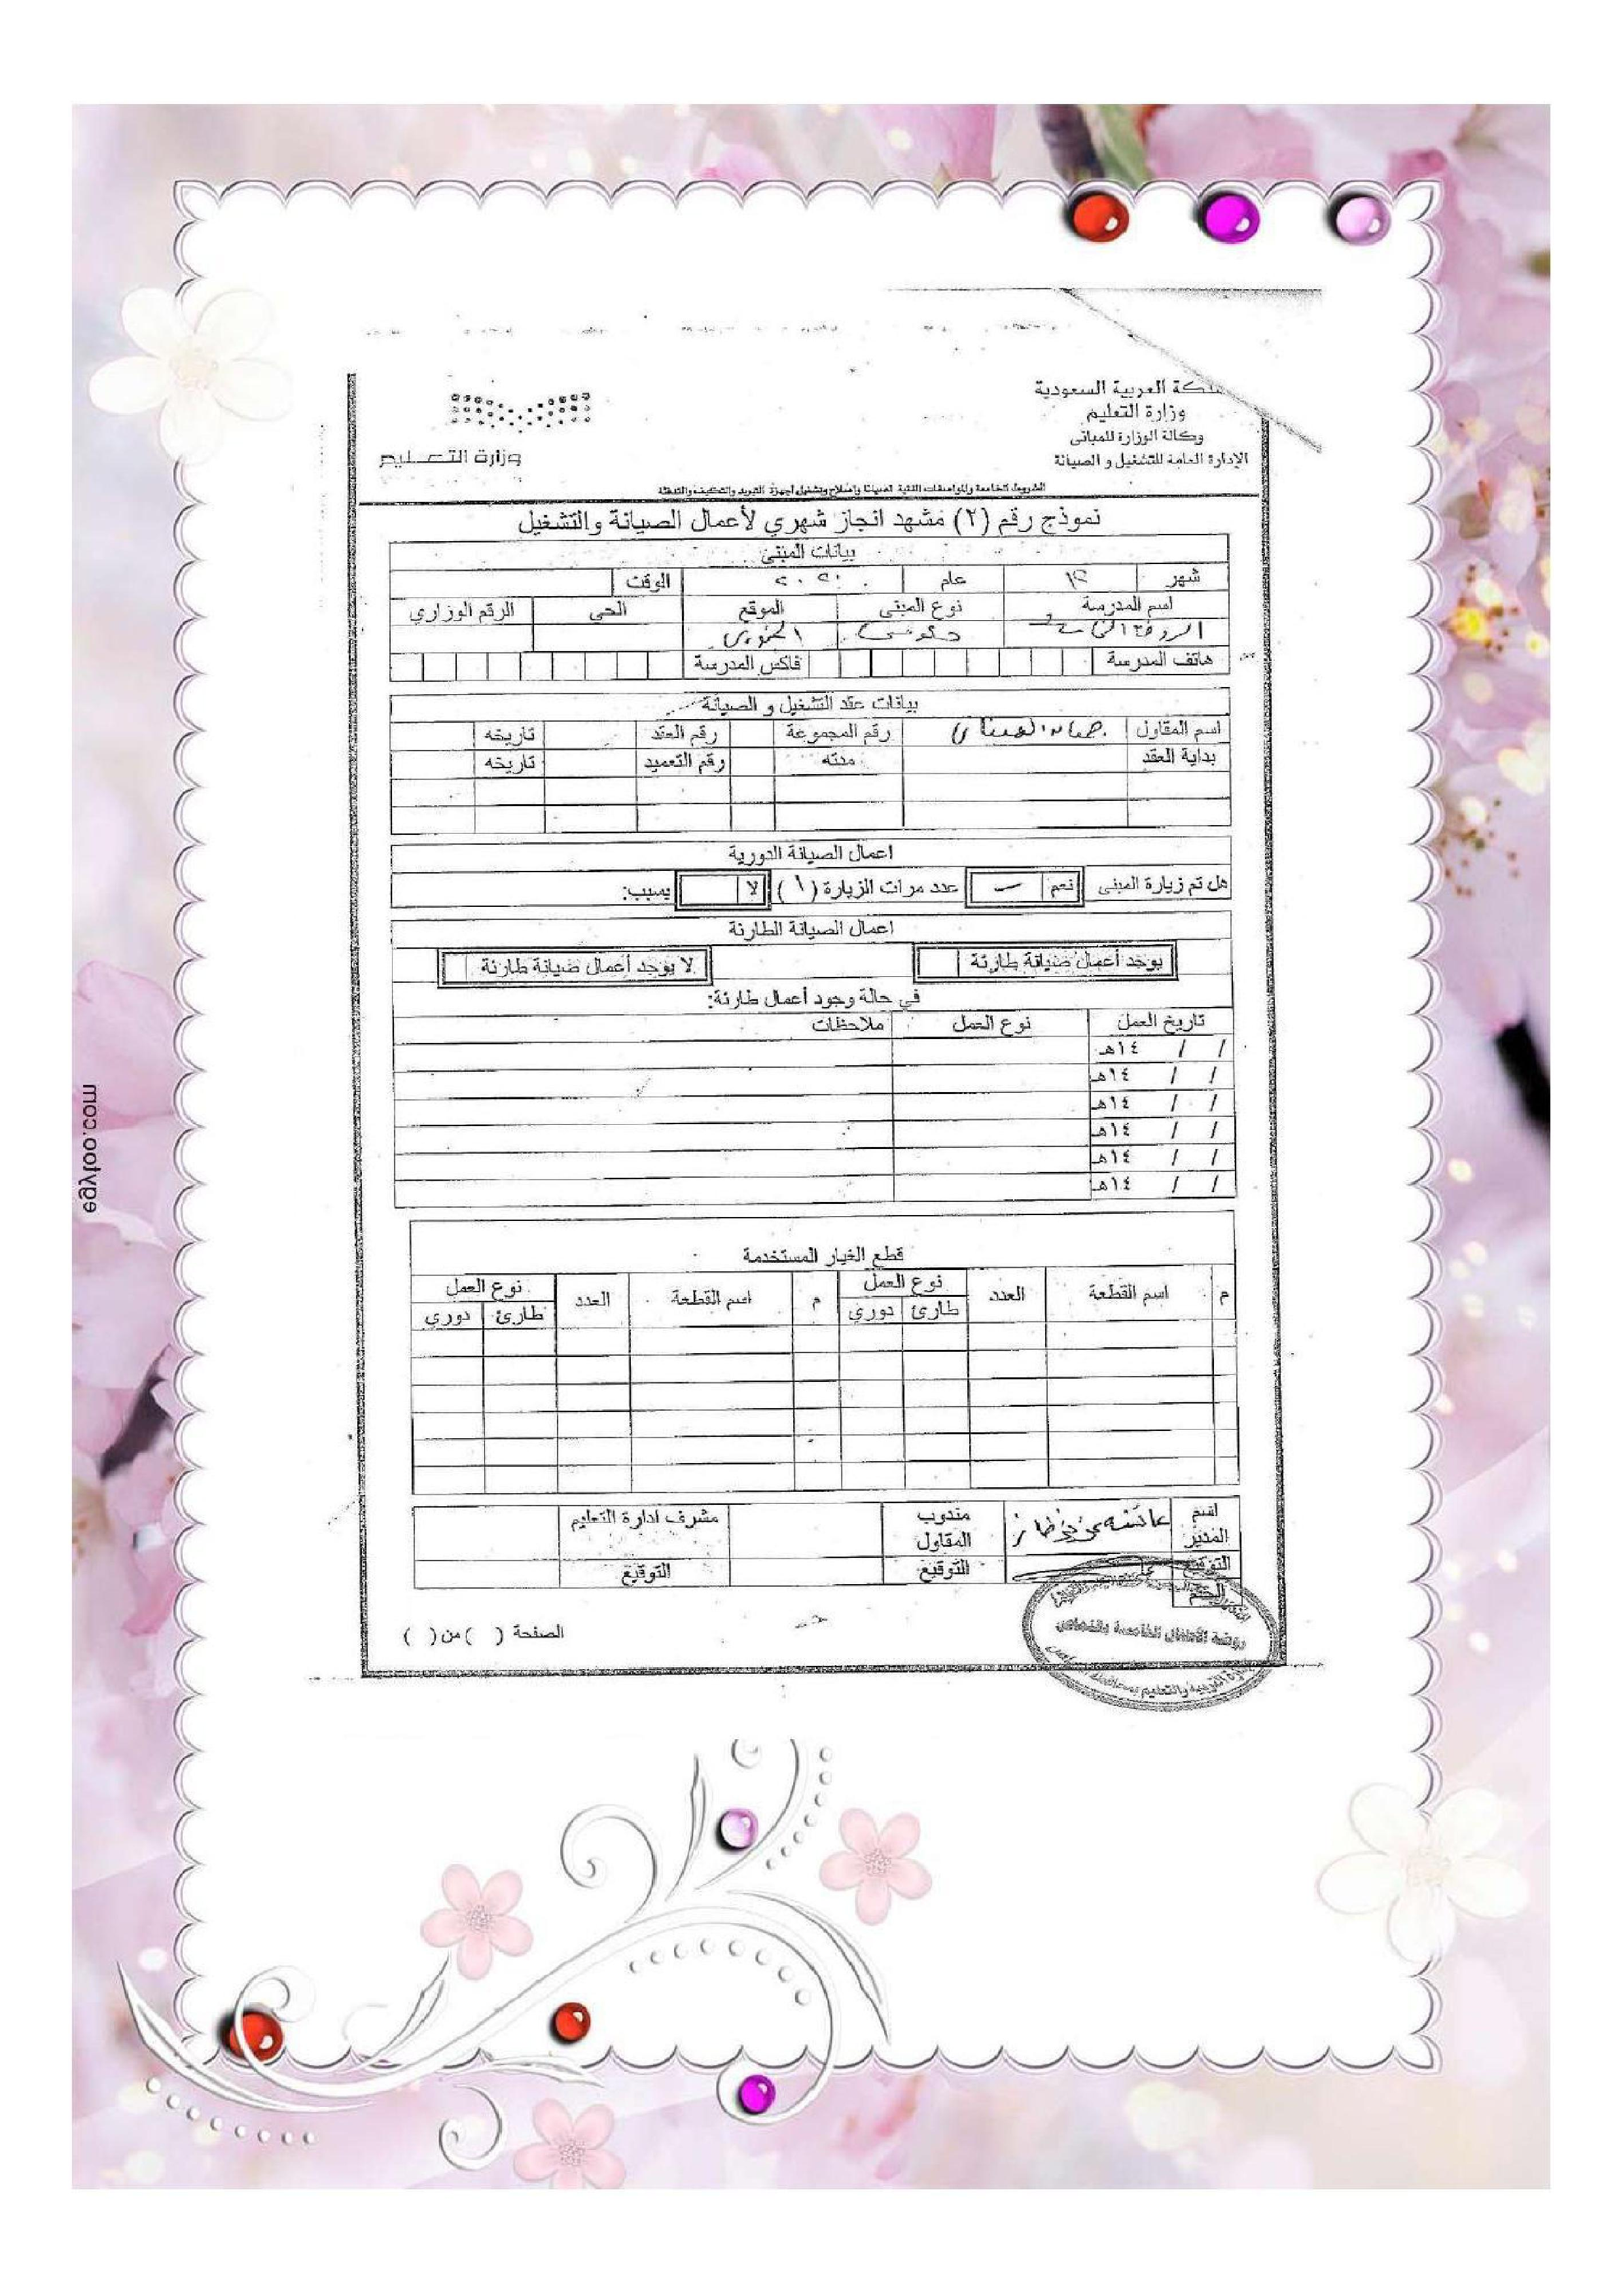 المملكة العربية السعودية
وزارة التعليم
وكالة الوزارة للمباني
الإدارة العامة للتشغيل و الصيانة
وزارة التعليم
الشروط الخاصة والمواصفات الفنية لصيانة وإصلاح وتشغيل أجهزة التبريد والتكييف والتدفئة
نموذج رقم (٢) مشهد انجاز شهري لأعمال الصيانة والتشغيل
بيانات المبنى
شهر ١٢ عام ٢٠٢٠ الوقت
اسم المدرسة نوع المبنى الموقع الحي الرقم الوزاري
الروضة الخامسة حكومي
هاتف المدرسة فاكس المدرسة
بيانات عقد التشغيل و الصيانة
اسم المقاول رقم المجموعة رقم العقد تاريخه
بداية العقد مدته رقم التعميد تاريخه
اعمال الصيانة الدورية
هل تم زيارة المبنى نعم عدد مرات الزيارة (١) لا بسبب:
اعمال الصيانة الطارئة
يوجد أعمال صيانة طارئة لا يوجد أعمال صيانة طارئة
في حالة وجود أعمال طارئة:
تاريخ العمل نوع العمل ملاحظات
/ / ١٤هـ
/ / ١٤هـ
/ / ١٤هـ
/ / ١٤هـ
/ / ١٤هـ
/ / ١٤هـ
قطع الغيار المستخدمة
م اسم القطعة العدد نوع العمل م اسم القطعة العدد نوع العمل
طارئ دوري طارئ دوري
اسم المدير عائشة مندوب المقاول مشرف ادارة التعليم
التوقيع التوقيع التوقيع
الختم
روضة الأطفال الخامسة بالخماسين
الصفحة ( ) من ( )
egyfoo.com